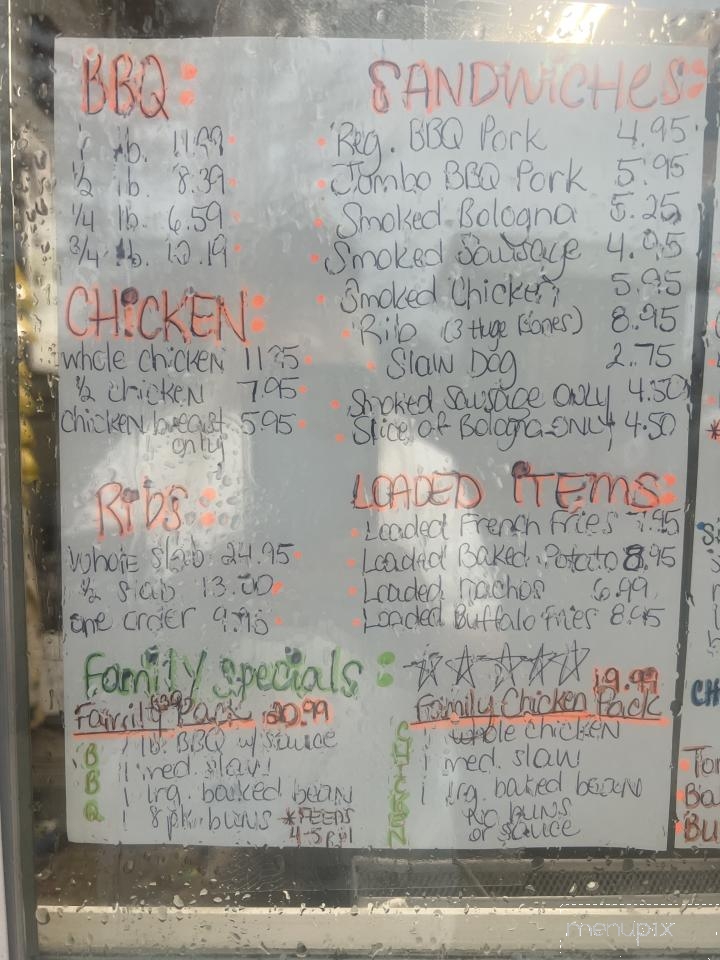 BBQ:
1 lb. 11.99
1/2 lb. 8.39
1/4 lb. 6.59
3/4 lb. 10.19
CHiCKEN:
whole chicken
1/2 chicken 7.95
chicken breast 5.95
only
Ribs:
whole slab 24.95
1/2 slab 13.00
one order 9.95
SANDWiCHeS:
Reg. BBQ Pork 4.95
Jumbo BBQ Pork 5.95
Smoked Bologna 5.25
Smoked Sausage 4.95
Smoked Chicken 5.95
Rib (3 Huge Bones) 8.95
Slaw Dog 2.75
Smoked Sausage ONLY 4.50
Slice of Bologna-ONLY 4.50
LOADED iTEMS:
Loaded French Fries 7.95
Loaded Baked Potato 8.95
Loaded nachos 6.99
Loaded Buffalo Fries 8.95
Family Specials:
Family BBQ Pack 20.99
BBQ
1 lb. BBQ w/ sauce
1 med. slaw
1 lrg. baked bean
1 8 pk. buns *FEEDS
4-5 ppl
19.99
Family Chicken Pack
CHICKEN
1 whole chicken
1 med. slaw
1 lrg. baked bean
No buns
or sauce
CH
Tor
Ba
Bu
menupix